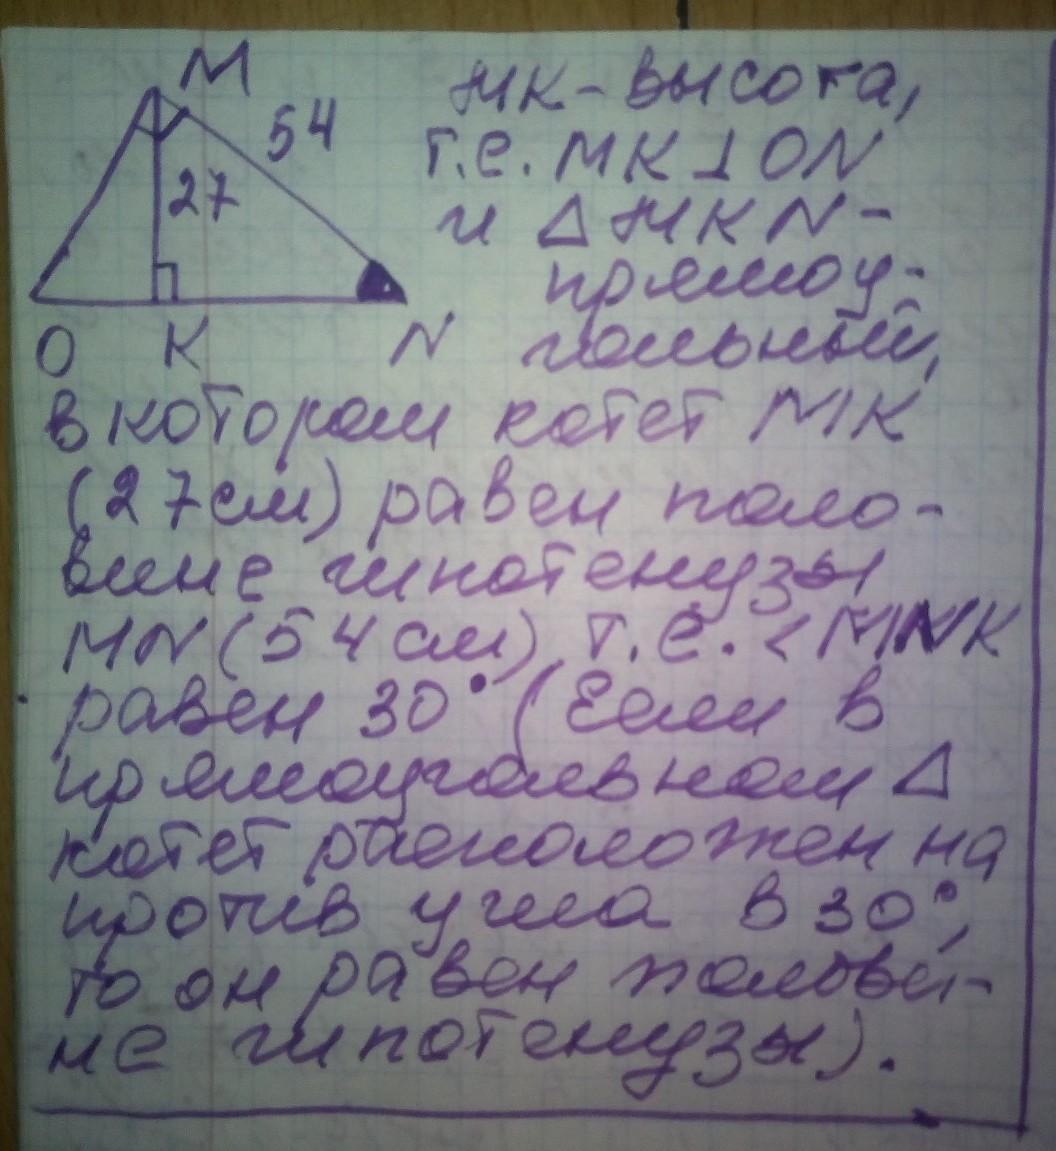 M
54
27
O K N
МК - высота,
т.е. МК ⊥ ON
и Δ MKN -
прямоу-
гольный,
в котором катет МК
(27см) равен поло-
вине гипотенузы
MN (54 см) т.е. < MNK
равен 30° (Если в
прямоугольном Δ
катет расположен на
против угла в 30°,
то он равен полови-
не гипотенузы).